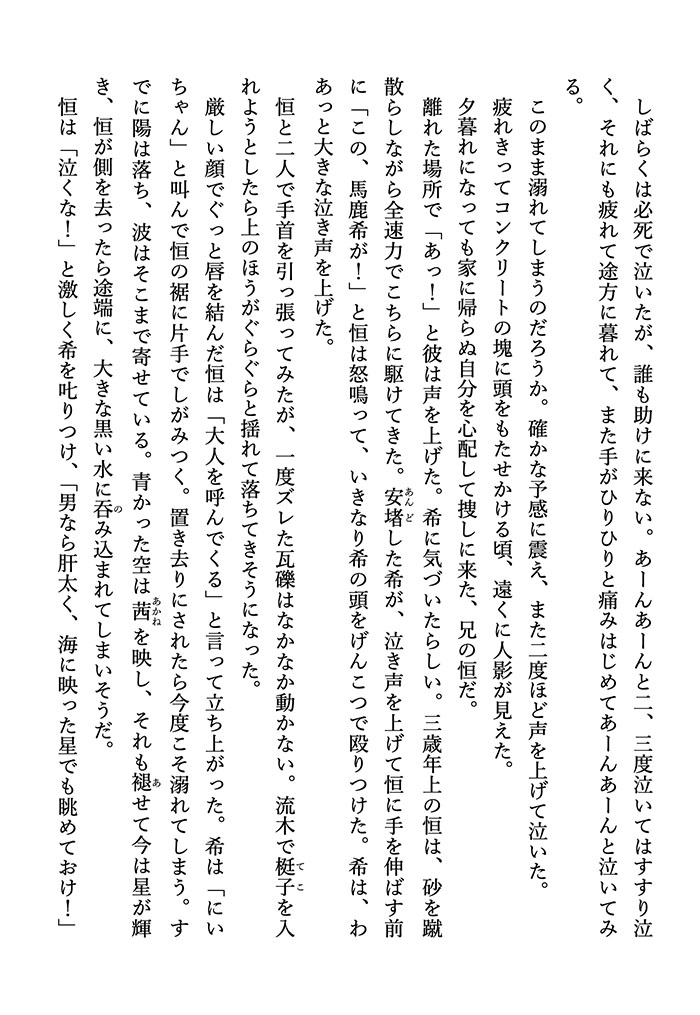 しばらくは必死で泣いたが、誰も助けに来ない。あーんあーんと二、三度泣いてはすすり泣
く、それにも疲れて途方に暮れて、また手がひりひりと痛みはじめてあーんあーんと泣いてみ
る。
このまま溺れてしまうのだろうか。確かな予感に震え、また二度ほど声を上げて泣いた。
疲れきってコンクリートの塊に頭をもたせかける頃、遠くに人影が見えた。
夕暮れになっても家に帰らぬ自分を心配して捜しに来た、兄の恒だ。
離れた場所で「あっ！」と彼は声を上げた。希に気づいたらしい。三歳年上の恒は、砂を蹴
散らしながら全速力でこちらに駆けてきた。安堵した希が、泣き声を上げて恒に手を伸ばす前
に「この、馬鹿希が！」と恒は怒鳴って、いきなり希の頭をげんこつで殴りつけた。希は、わ
あっと大きな泣き声を上げた。
恒と二人で手首を引っ張ってみたが、一度ズレた瓦礫はなかなか動かない。流木で梃子を入
れようとしたら上のほうがぐらぐらと揺れて落ちてきそうになった。
厳しい顔でぐっと唇を結んだ恒は「大人を呼んでくる」と言って立ち上がった。希は「にい
ちゃん」と叫んで恒の裾に片手でしがみつく。置き去りにされたら今度こそ溺れてしまう。す
でに陽は落ち、波はそこまで寄せている。青かった空は茜を映し、それも褪せて今は星が輝
き、恒が側を去ったら途端に、大きな黒い水に呑み込まれてしまいそうだ。
恒は「泣くな！」と激しく希を叱りつけ、「男なら肝太く、海に映った星でも眺めておけ！」